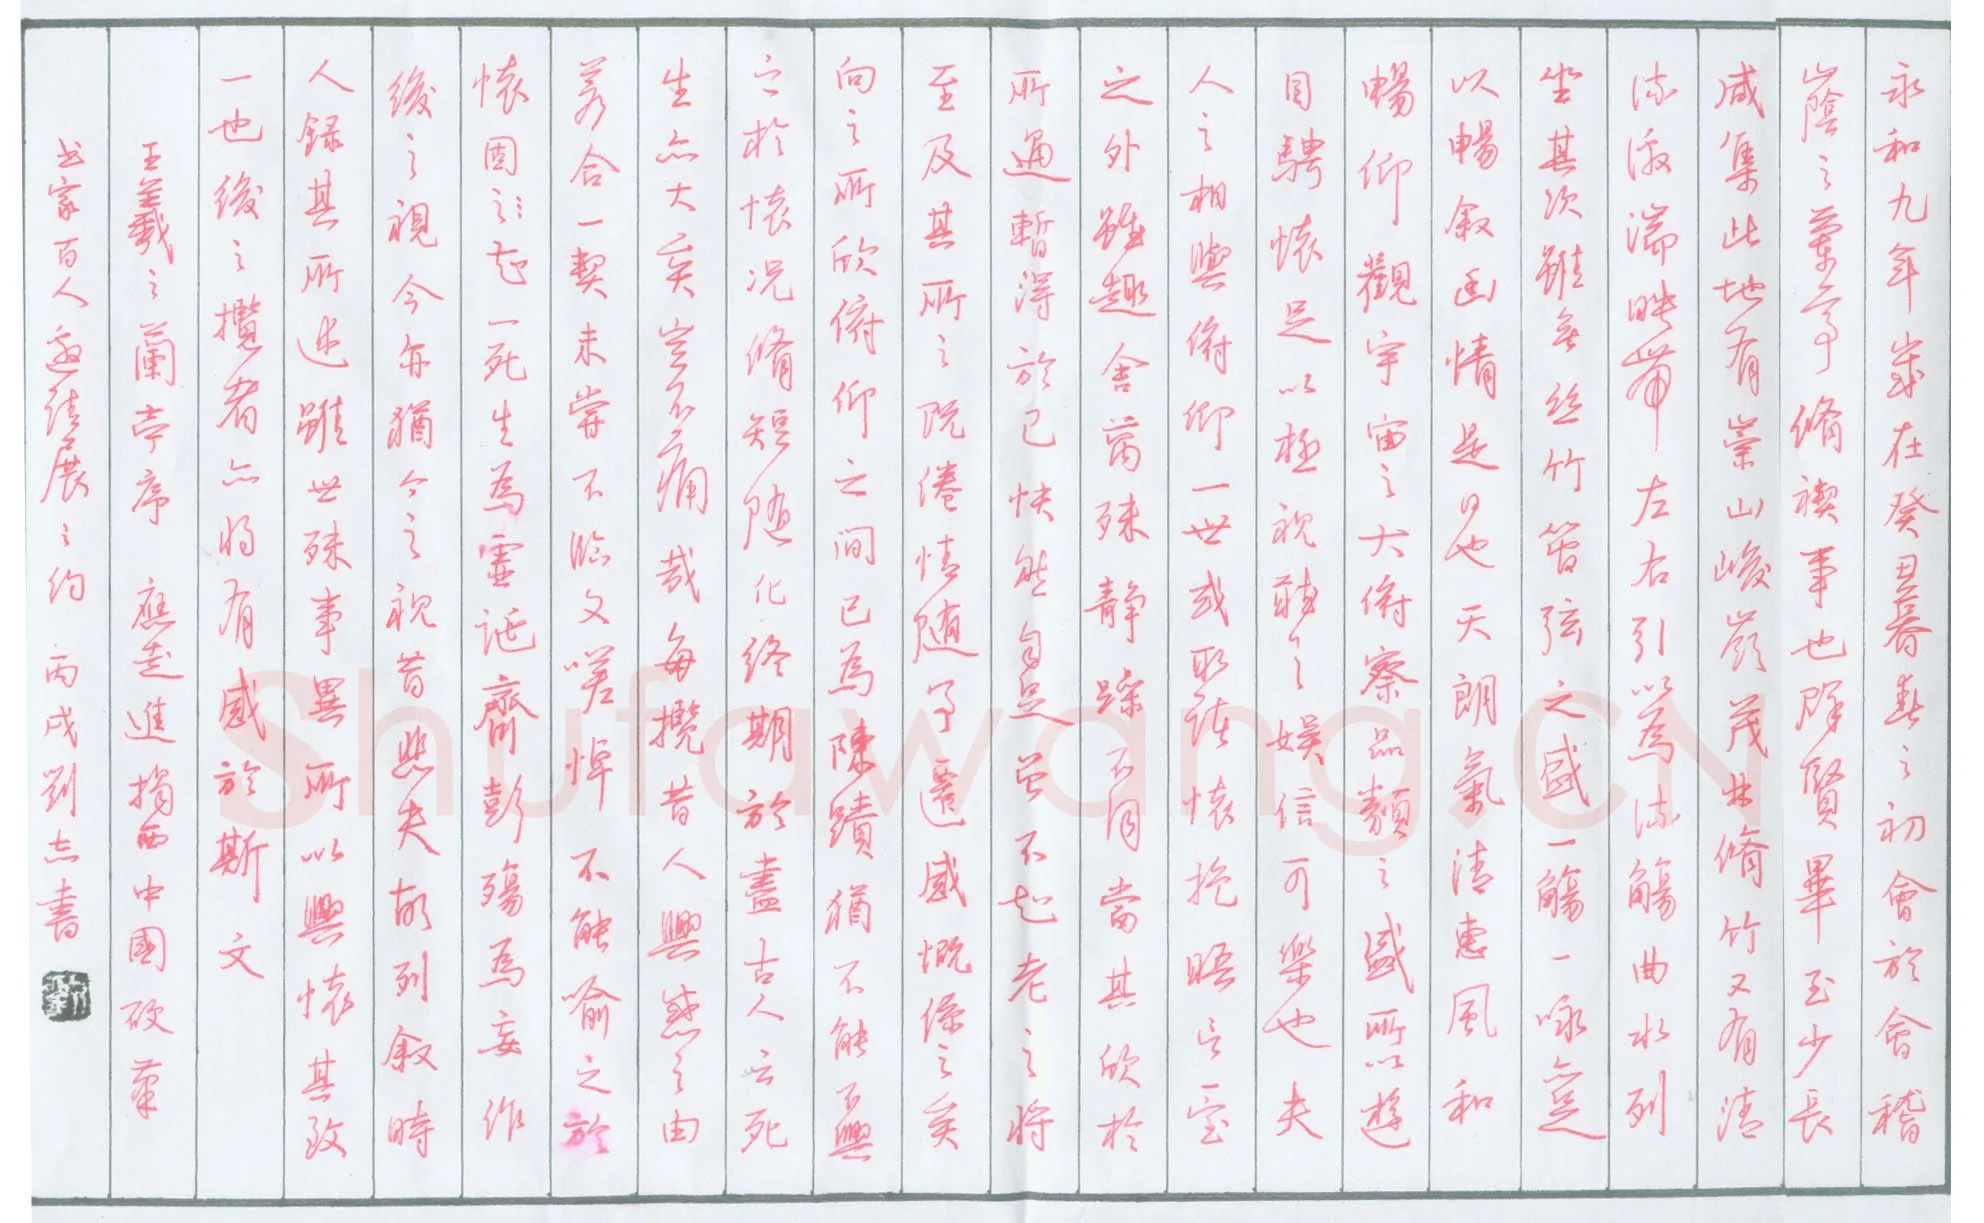 永和九年歲在癸丑暮春之初會於會稽
山陰之蘭亭脩禊事也群賢畢至少長
咸集此地有崇山峻嶺茂林脩竹又有清
流激湍映帶左右引以為流觴曲水列
坐其次雖無絲竹管弦之盛一觴一詠亦足
以暢敘幽情是日也天朗氣清惠風和
暢仰觀宇宙之大俯察品類之盛所以遊
目騁懷足以極視聽之娛信可樂也夫
人之相與俯仰一世或取諸懷抱晤言一室
之外雖趣舍萬殊静躁不同當其欣於
所遇暫得於己快然自足曾不知老之將
至及其所之既倦情随事遷感慨係之矣
向之所欣俯仰之間已為陳蹟猶不能不興
之於懷況脩短随化終期於盡古人云死
生亦大矣豈不痛哉每攬昔人興感之由
若合一契未嘗不臨文嗟悼不能喻之於
懷固之知一死生為虛誕齊彭殤為妄作
後之視今亦猶今之視昔悲夫故列敘時
人錄其所述雖世殊事異所以興懷其致
一也後之攬者亦將有感於斯文
王羲之蘭亭序 應 進 中國硬筆
书家百人邀請展之約 丙戌劉志書
Shufawang.CN